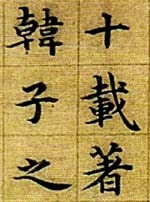 十載著
韓子之